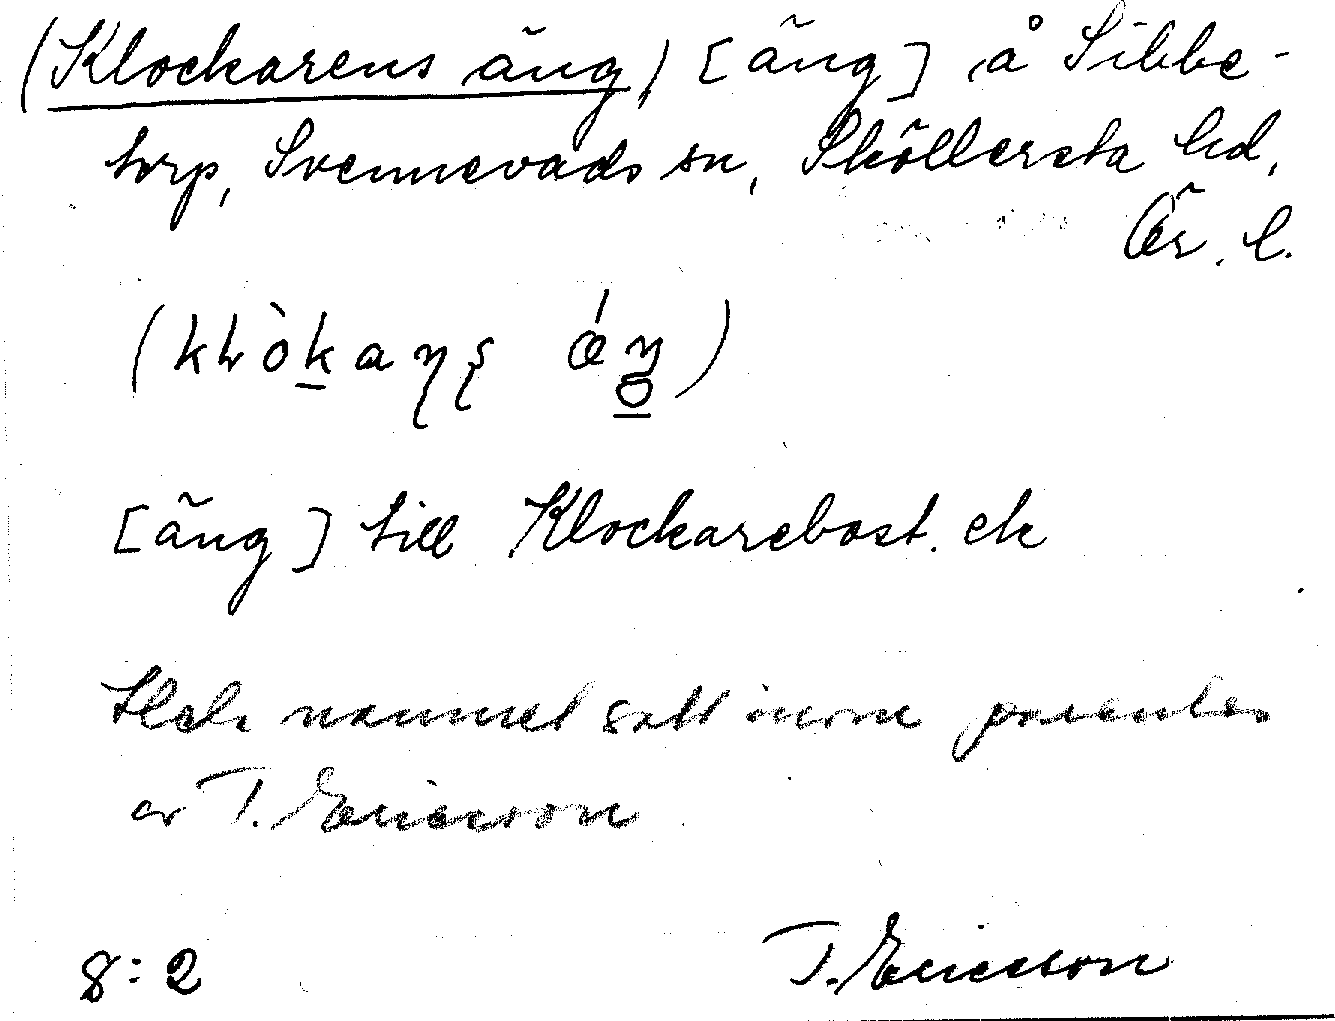 (Klockarens äng) [äng] å Sibbe-
torp, Svennevads sn, Sköllersta hd,
Ör. l.
[äng] till Klockarebost. ck
namnet satt inom parentes
av T. Ericsson
8:2 T. Ericsson